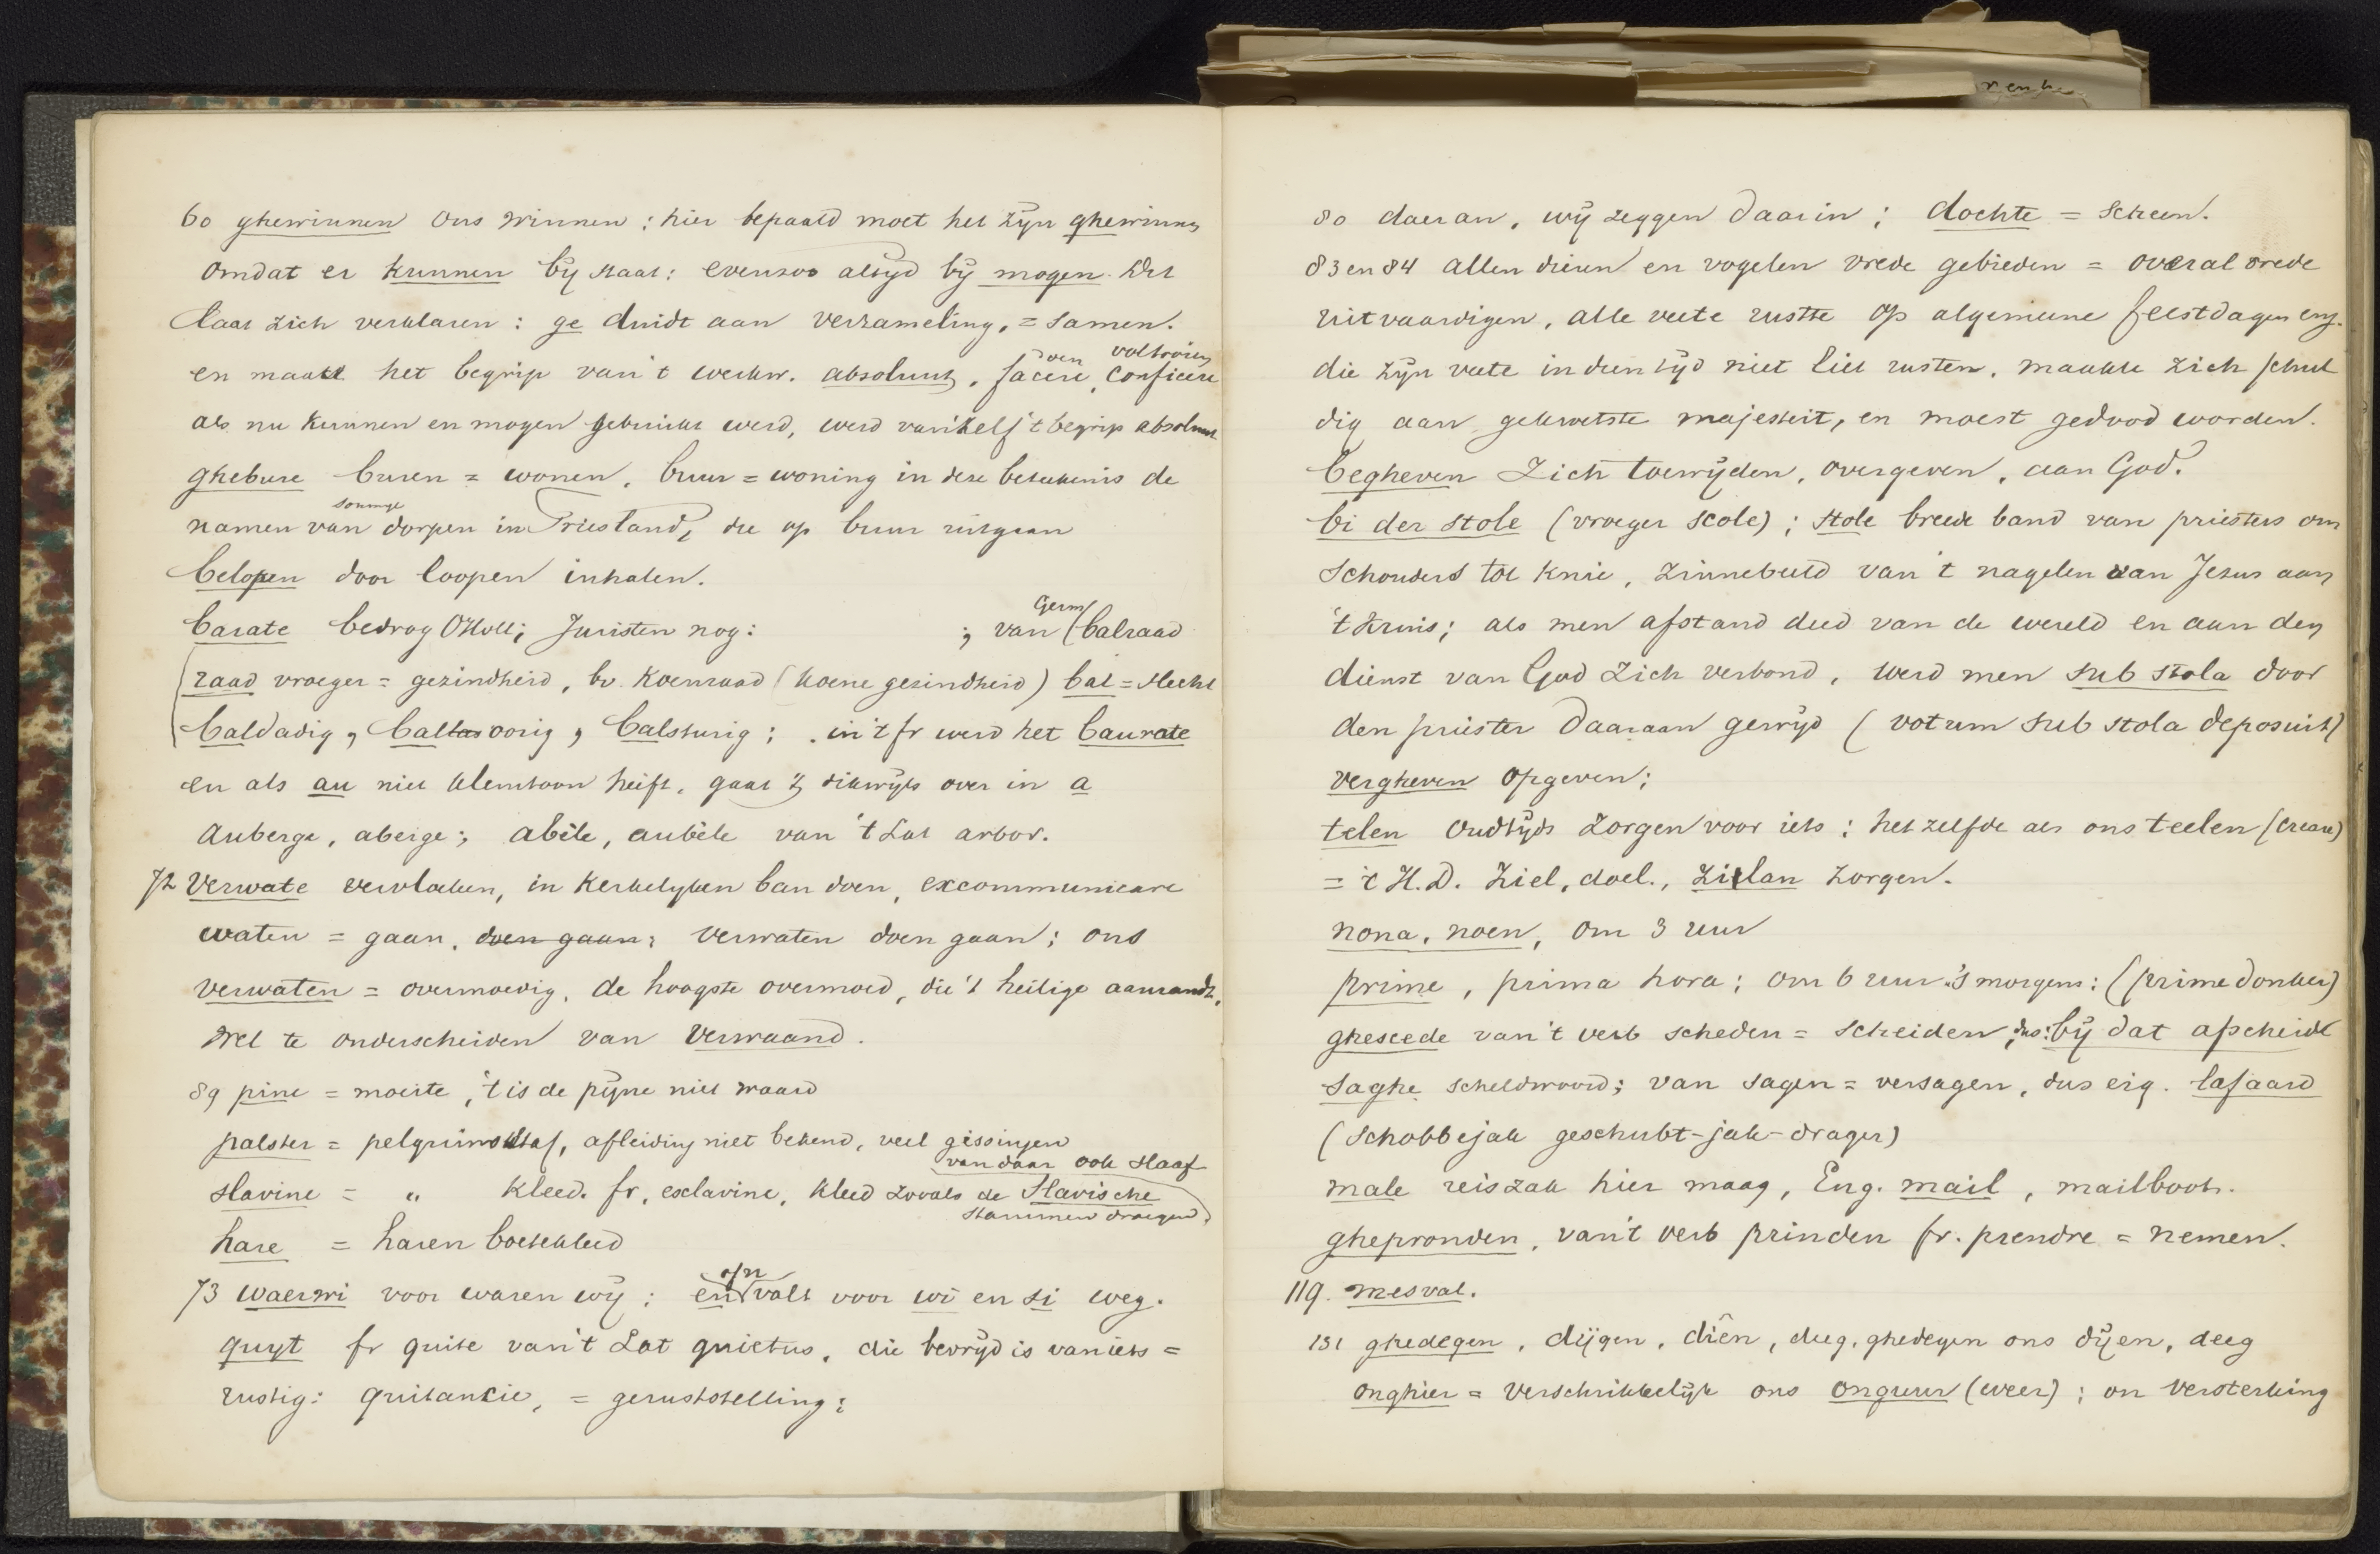 60 ghewinnen ons winnen : hier bepaald moet het zijn ghewinnen
omdat er kunnen bij staat: evenzoo altijd bij mogen. Dit
laat zich verklaren : ge duidt aan verzameling, = samen.
en maakt het begrip van 't werkw. absoluut, facere, conficere
doen voltooien
als nu kunnen en mogen gebruikt werd, werd vanzelf 't begrip absoluut
ghebure buren = wonen, buur = woning in deze beteekenis de
namen van sommige dorpen in Friesland, die op buur uitgaan
belopen door loopen inhalen.
barate bedrog OHoll; Juristen nog: ; van Germ (balraad
raad vroeger = gezindheid, bv. Koenraad (koene gezindheid) bal = slecht
baldadig, baldoorig, balsturig; in 't fr werd het baurate
en als au niet klemtoon heeft, gaat zij dikwijls over in a
auberge, aberge; abèle, aubèle van 't Lat arbor.
72 Verwate vervloeken, in kerkelyken ban doen, excommunicare
waten = gaan, doen gaan; verwaten doen gaan; ons
verwaten = overmoedig, de hoogste overmoed, die 't heilige aanrandt,
wel te onderscheiden van verwaand.
89 pine = moeite, 't is de pijne niet waard
palster = pelgrimsstaf, afleiding niet bekend, veel gissingen
van daar ook slaaf
slavine = " kleed. fr, esclavine, kleed zooals de Slavische
stammen droegen
hare = haren boetekleed
73 waerwi voor waren wij; en of n valt voor wi en si weg.
quyt fr quite van 't Lat quietus, die bevrijd is van iets =
rustig: quitantie, = geruststelling;
80 daeran, wij zeggen daarin; dochte = scheen.
83 en 84 allen dieren en vogelen vrede gebieden = overal vrede
uitvaardigen, alle veete rustte op algemeene feestdagen enz.
die zijn veete in dien tijd niet liet rusten, maakte zich schul
dig aan gekwetste majesteit, en moest gedood worden.
begheven zich toewijden, overgeven, aan God.
bi der stole (vroeger scole); stole breede band van priesters om
schouders tot knie, zinnebeeld van 't nagelen van Jezus aan
't kruis; als men afstand deed van de wereld en aan den
dienst van God zich verbond, werd men sub stola door
den priester daaraan gewijd (votum sub stola deposuit)
vergheven opgeven;
telen oudtijds zorgen voor iets; het zelfde als ons teelen (creare)
= 't H.D. Ziel, doel., zilan zorgen.
nona, noen, om 3 uur
prime, prima hora; om 6 uur 's morgens: (prime donker)
ghescede van 't verb scheden = scheiden; dus: bij dat afscheid
saghe scheldwoord; van sagen = versagen, dus eig. lafaard
(schobbejak geschubt-jak-drager)
male reiszak hier maag, Eng. mail, mailboot.
ghepronden, van 't verb prinden fr. prendre = nemen.
119. mesval.
131 ghedegen, dijgen, diên, deeg, ghedegen ons dijen, deeg
onghier = verschrikkelijk ons onguur (weer); on versterking